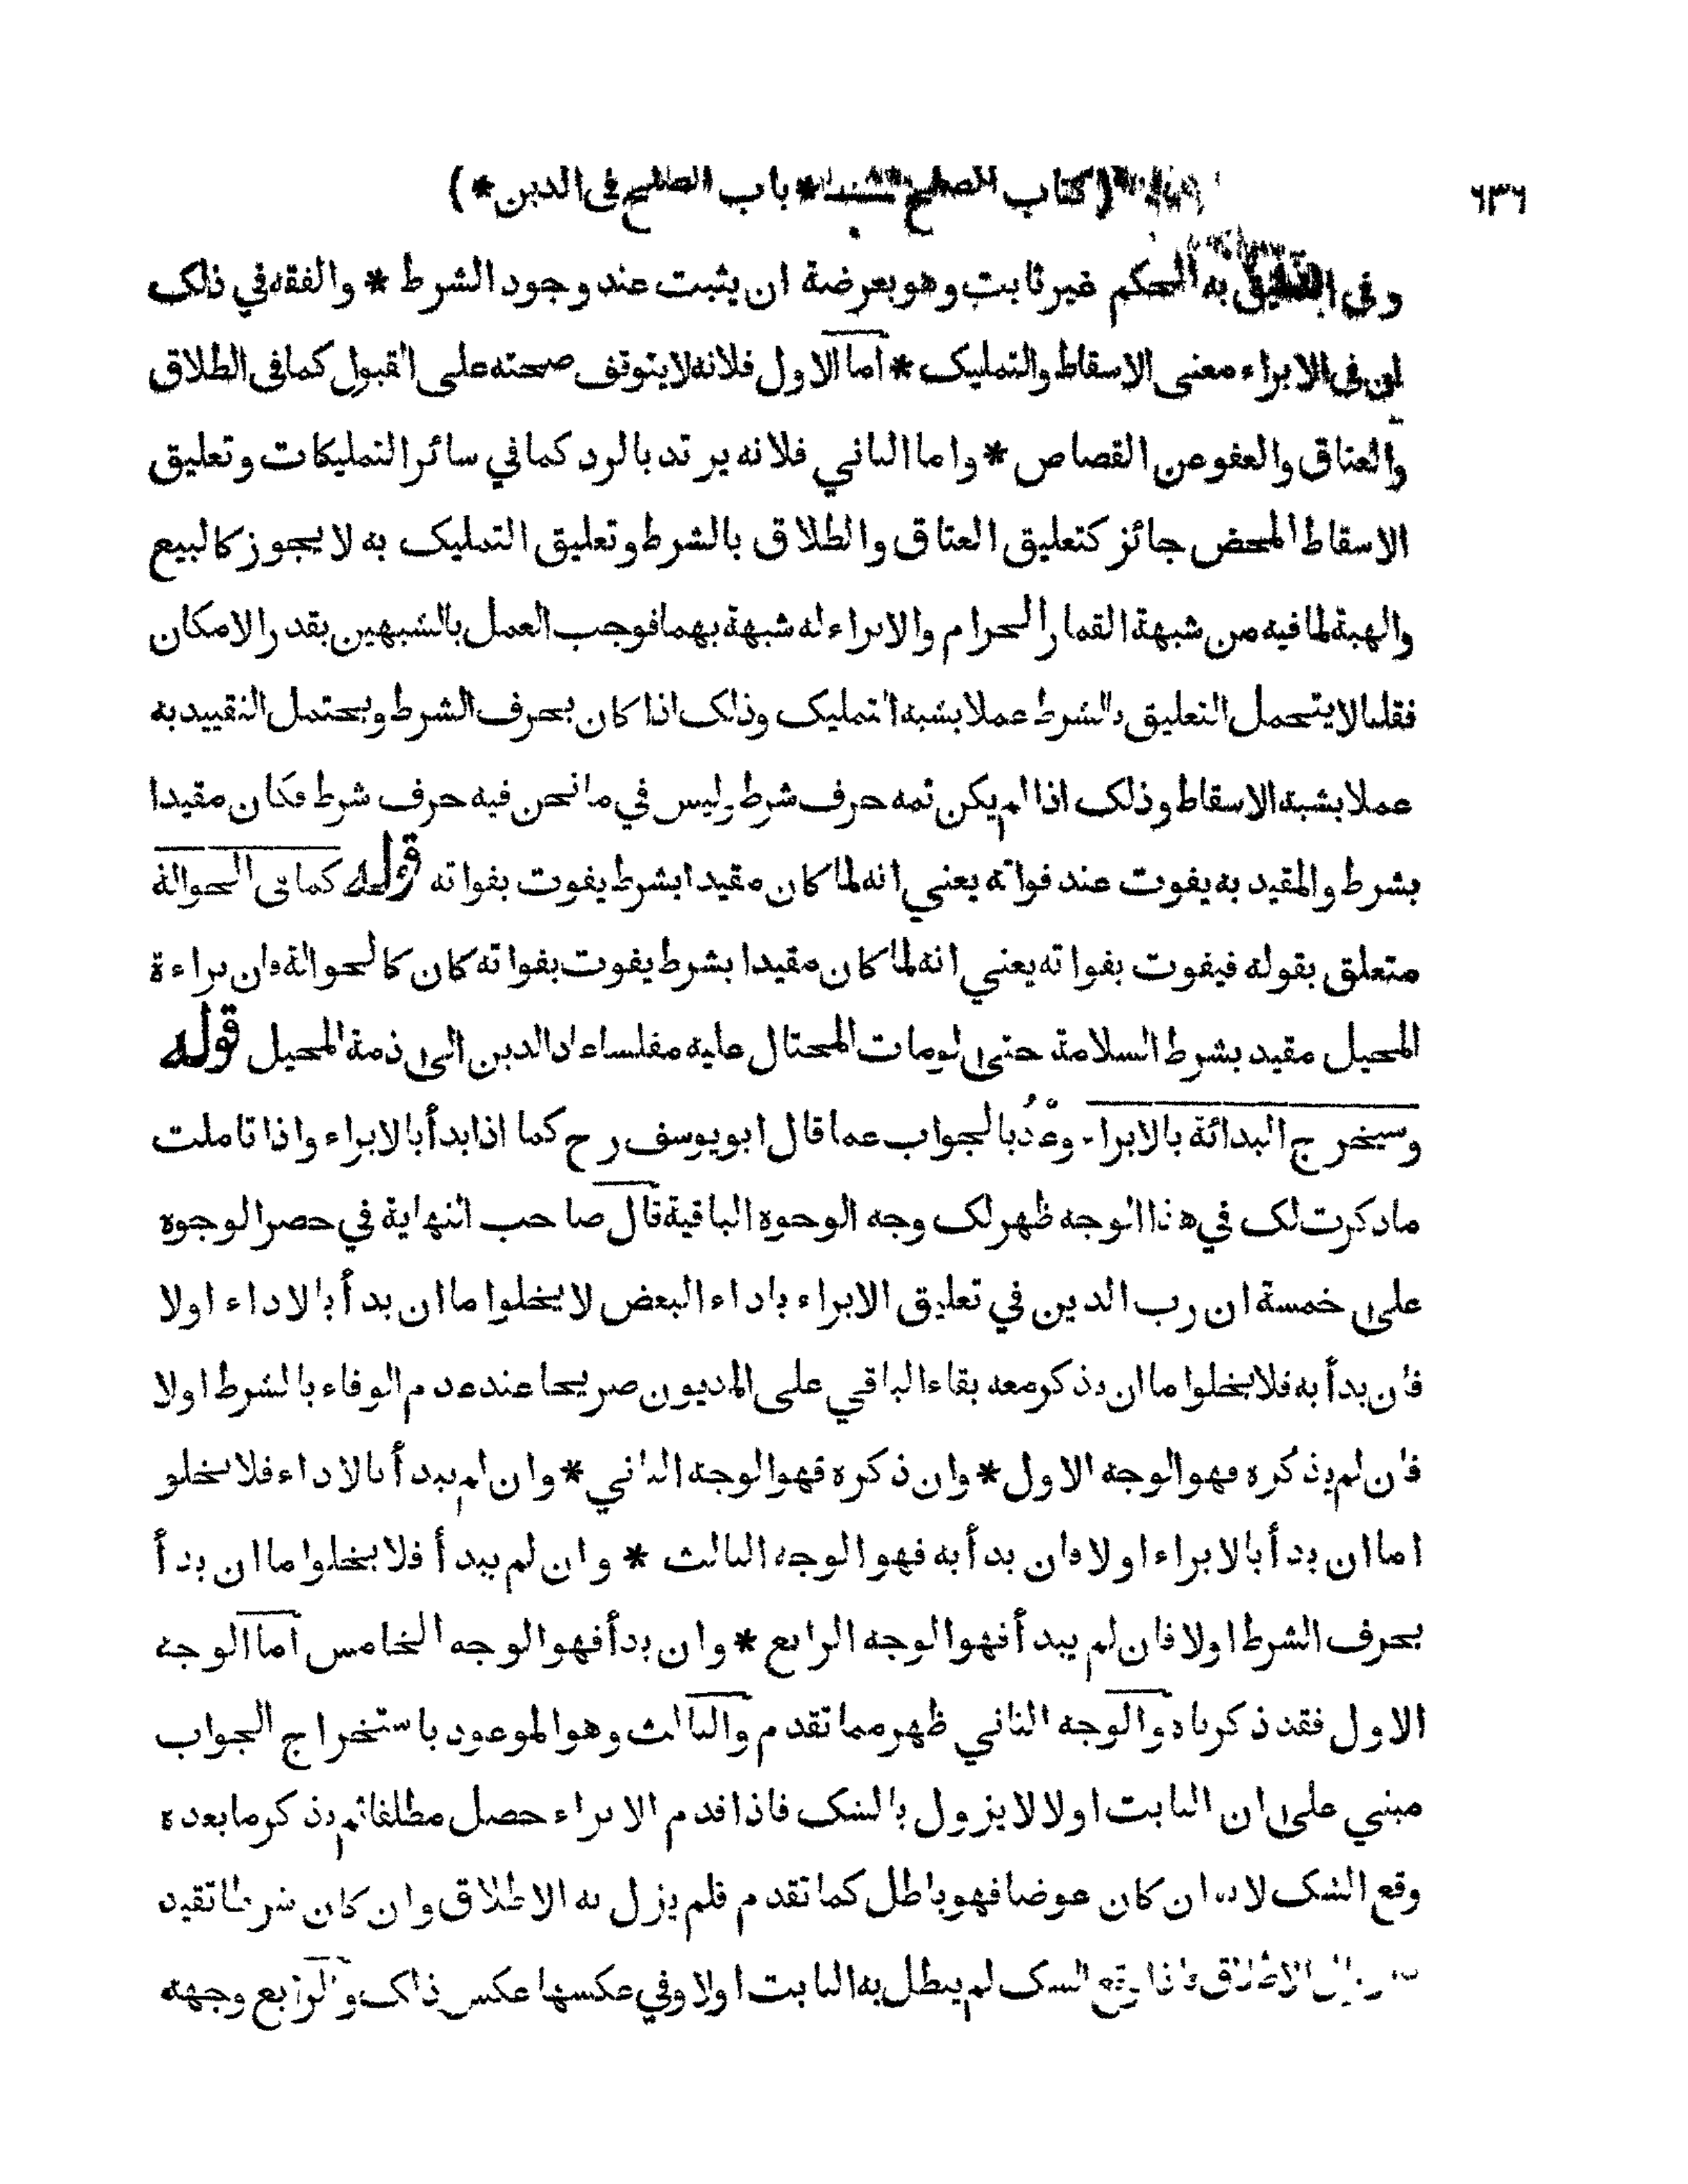 ٦٣٦
(كتاب الصلح * باب الصلح في الدين *)
وفي التعليق به الحكم غير ثابت وهو بعرضة ان يثبت عند وجود الشرط * والفقه في ذلك
ان في الابراء معنى الاسقاط والتمليك * اما الاول فلانه لا يتوقف صحته على القبول كما في الطلاق
والعتاق والعفو عن القصاص * واما الثاني فلانه يرتد بالرد كما في سائر التمليكات وتعليق
الاسقاط المحض جائز كتعليق العتاق والطلاق بالشرط وتعليق التمليك به لا يجوز كالبيع
والهبة لما فيه من شبهة القمار الحرام والابراء له شبهة بهما فوجب العمل بالشبهين بقدر الامكان
فقلنا لا يتحمل التعليق بالشرط عملا بشبه التمليك وذلك اذا كان بحرف الشرط ويحتمل التقييد به
عملا بشبه الاسقاط وذلك اذا لم يكن ثمه حرف شرط وليس في ما نحن فيه حرف شرط فكان مقيدا
بشرط والمقيد به يفوت عند فواته يعني انه لما كان مقيدا بشرط يفوت بفواته قوله كما في الحوالة
متعلق بقوله فيفوت بفواته يعني انه لما كان مقيدا بشرط يفوت بفواته كان كالحوالة فان براءة
المحيل مقيد بشرط السلامة حتى لومات المحتال عليه مفلسا عاد الدين الى ذمة المحيل قوله
وسيخرج البدائة بالابراء وعد بالجواب عما قال ابو يوسف رح كما اذا بدأ بالابراء واذا تاملت
ما ذكرت لك في هذا الوجه ظهر لك وجه الوجوه الباقية قال صاحب النهاية في حصر الوجوه
على خمسة ان رب الدين في تعليق الابراء باداء البعض لا يخلوا ما ان بدأ بالاداء اولا
فان بدأ به فلا يخلوا ما ان يذكر معه بقاء الباقي على المديون صريحا عند عدم الوفاء بالشرط اولا
فان لم يذكره فهو الوجه الاول * وان ذكره فهو الوجه الثاني * وان لم يبدأ بالاداء فلا يخلو
اما ان بدأ بالابراء اولا فان بدأ به فهو الوجه الثالث * وان لم يبدأ فلا يخلوا ما ان بدأ
بحرف الشرط اولا فان لم يبدأ فهو الوجه الرابع * وان بدأ فهو الوجه الخامس اما الوجه
الاول فقد ذكرناه والوجه الثاني ظهر مما تقدم والثالث وهو الموعود باستخراج الجواب
مبني على ان الثابت اولا لا يزول بالشك فاذا قدم الابراء حصل مطلقا ثم يذكر ما بعده
وقع الشك لانه ان كان عوضا فهو باطل كما تقدم فلم يزل به الاطلاق وان كان شرطا تقيد
الاطلاق فاذا وقع الشك لم يبطل به الثابت اولا وفي عكسها عكس ذلك والرابع وجهه